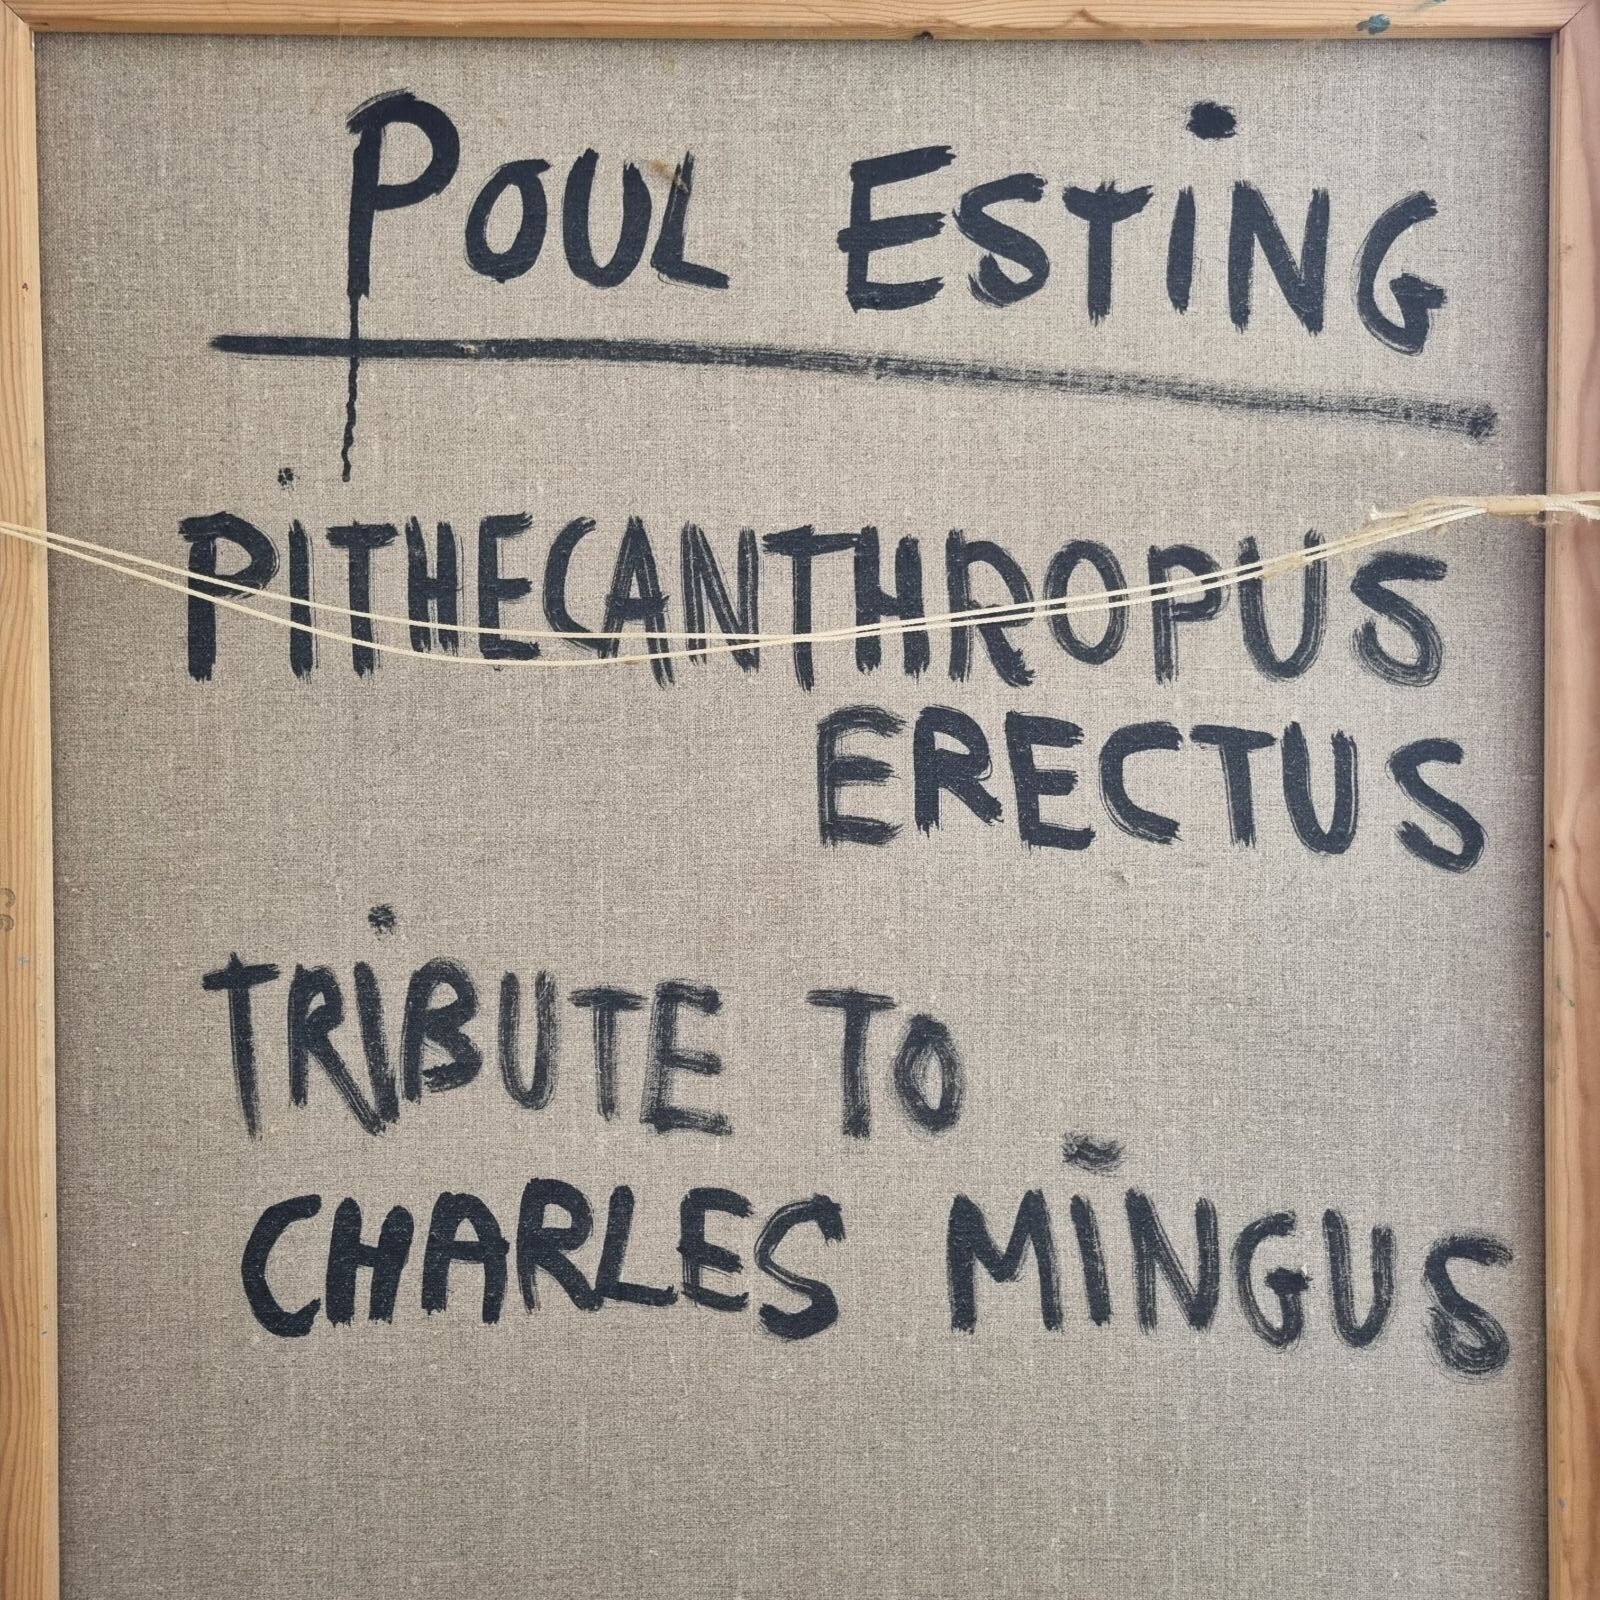 POUL ESTING
PITHECANTHROPUS
ERECTUS
TRIBUTE TO
CHARLES MINGUS